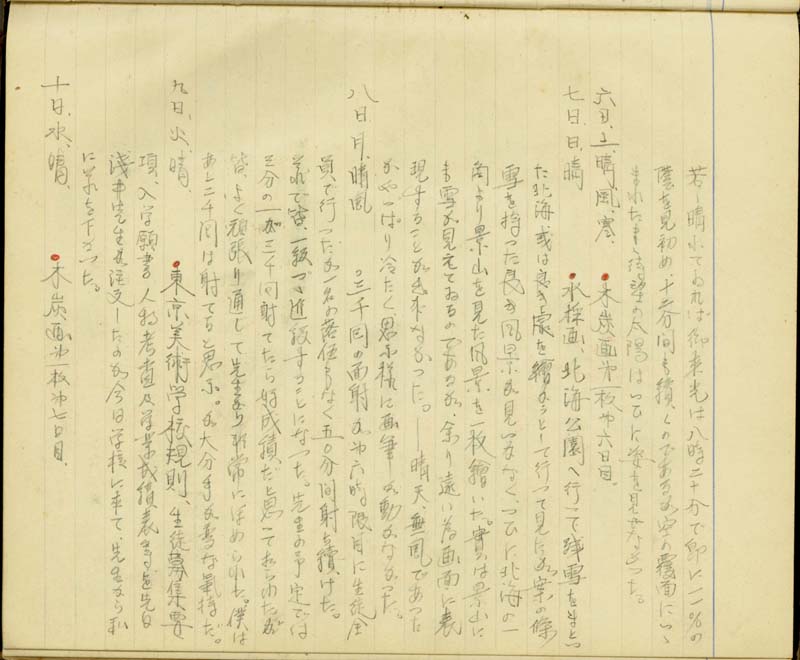 若し晴れてゐれば御来光は八時二十分で即に一一%の
虧を見初め、十三分間も續くのであるが空の覆面につゝ
まれたまゝ待望の太陽はつひに姿を見せなかつた。
六日、土、晴、風、寒、 木炭画第一枚第六日目。
七日、日、晴 水採画、北海公園へ行って残雪をまとつ
た北海或は良き處を繪かうとして行って見たが案の條
雪を持った良き風景が見いなく、つひに北海の一
角より景山を見た風景を一枚繪いた。實は景山に
も雪が見えてゐるのであるが、余り遠い為画面に表
現することが出来なかつた。―晴天、無風であつた
がやっぱり冷たく、思ふ様に画筆が動かなかつた。
八日、月、晴風 三千回の面射が第六時限目に生徒全
員で行ったが一名の落伍もなく五〇分間射ち續けた。
それで皆、一級づゝ進級することになつた。先生の予定では
三分の一が三千回射てたら好成績だと思ってをられたが
皆、よく頑張り通して先生より非常にほめられた。僕は
あと二千回は射てると思ふ。が大分手が変な氣持だ。
九日、火、晴、 東京美術学校規則、生徒募集要
項、入学願書人物考査及学業成績表まで先日
浅井先生が注文したのが今日学校に来て、先生から私
に下さつた。
十日、水、晴、 木炭画第一枚第七日目。